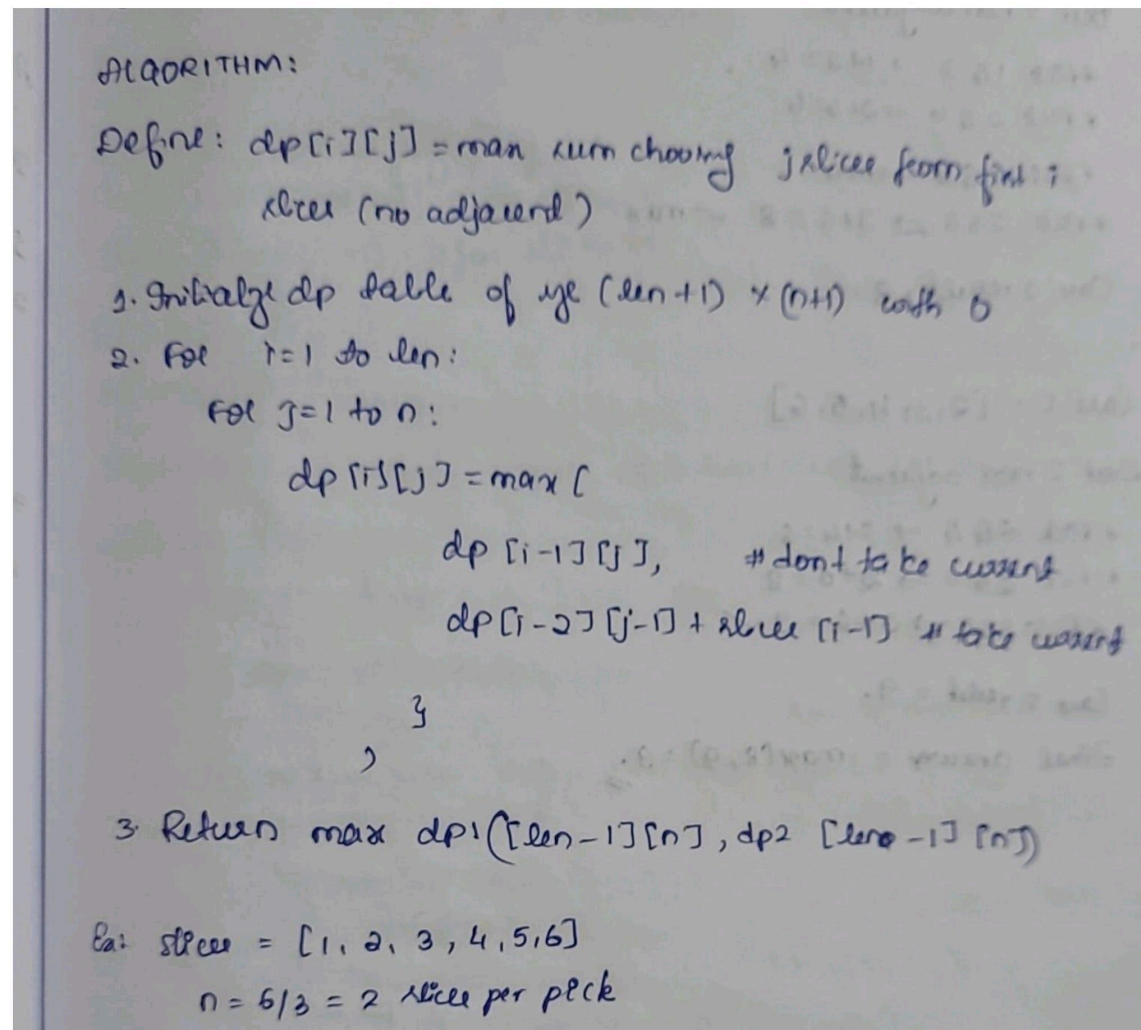 ALGORITHM:
Define: dp[i][j] = max sum choosing j slices from first i
slices (no adjacent)
1. Initialize dp table of size (len+1) x (n+1) with 0
2. For i=1 to len:
For j=1 to n:
dp[i][j] = max (
dp [i-1][j], # dont take current
dp[i-2][j-1] + slices [i-1] # take current
}
)
3. Return max dp1([len-1][n], dp2 [len-1][n])
Ex: slices = [1, 2, 3, 4, 5, 6]
n = 6/3 = 2 slice per pick